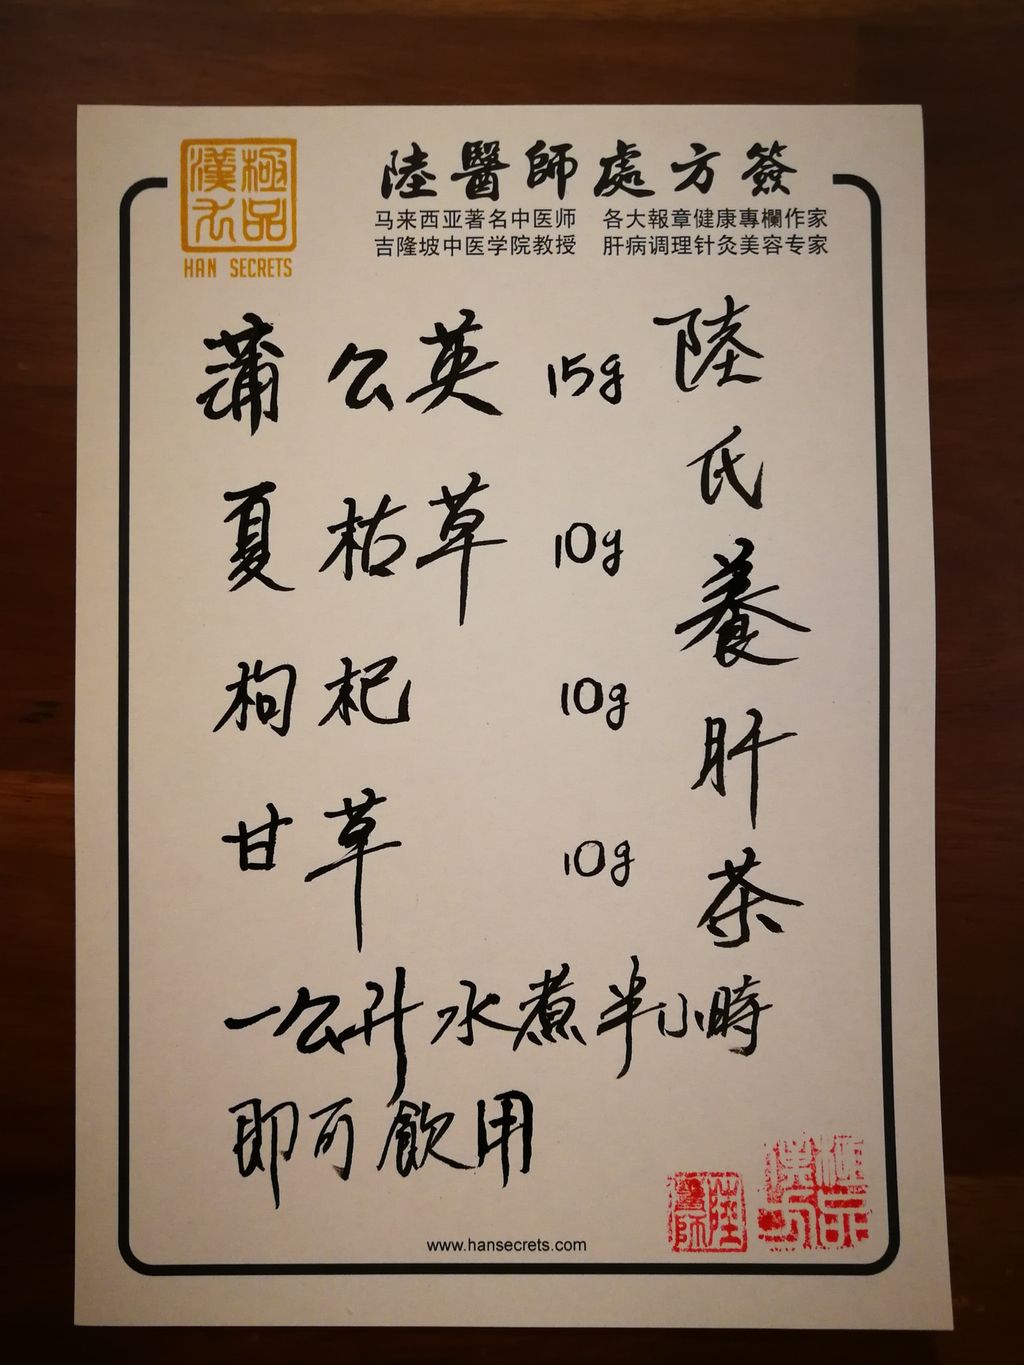 極品
漢方
HAN SECRETS
陸醫師處方簽
马来西亚著名中医师 各大報章健康專欄作家
吉隆坡中医学院教授 肝病调理针灸美容专家
陸氏養肝茶
蒲公英 15g
夏枯草 10g
枸杞 10g
甘草 10g
一公升水煮半小時
即可飲用
陸醫師
極品漢方
www.hansecrets.com